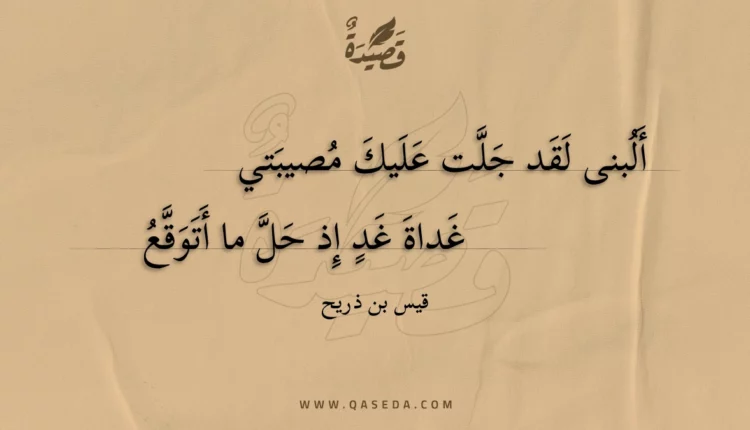 قَصِيْدَةٌ
أَلُبنى لَقَد جَلَّت عَلَيكَ مُصيبَتي
غَداةَ غَدٍ إِذ حَلَّ ما أَتَوَقَّعُ
قيس بن ذريح
WWW.QASEDA.COM